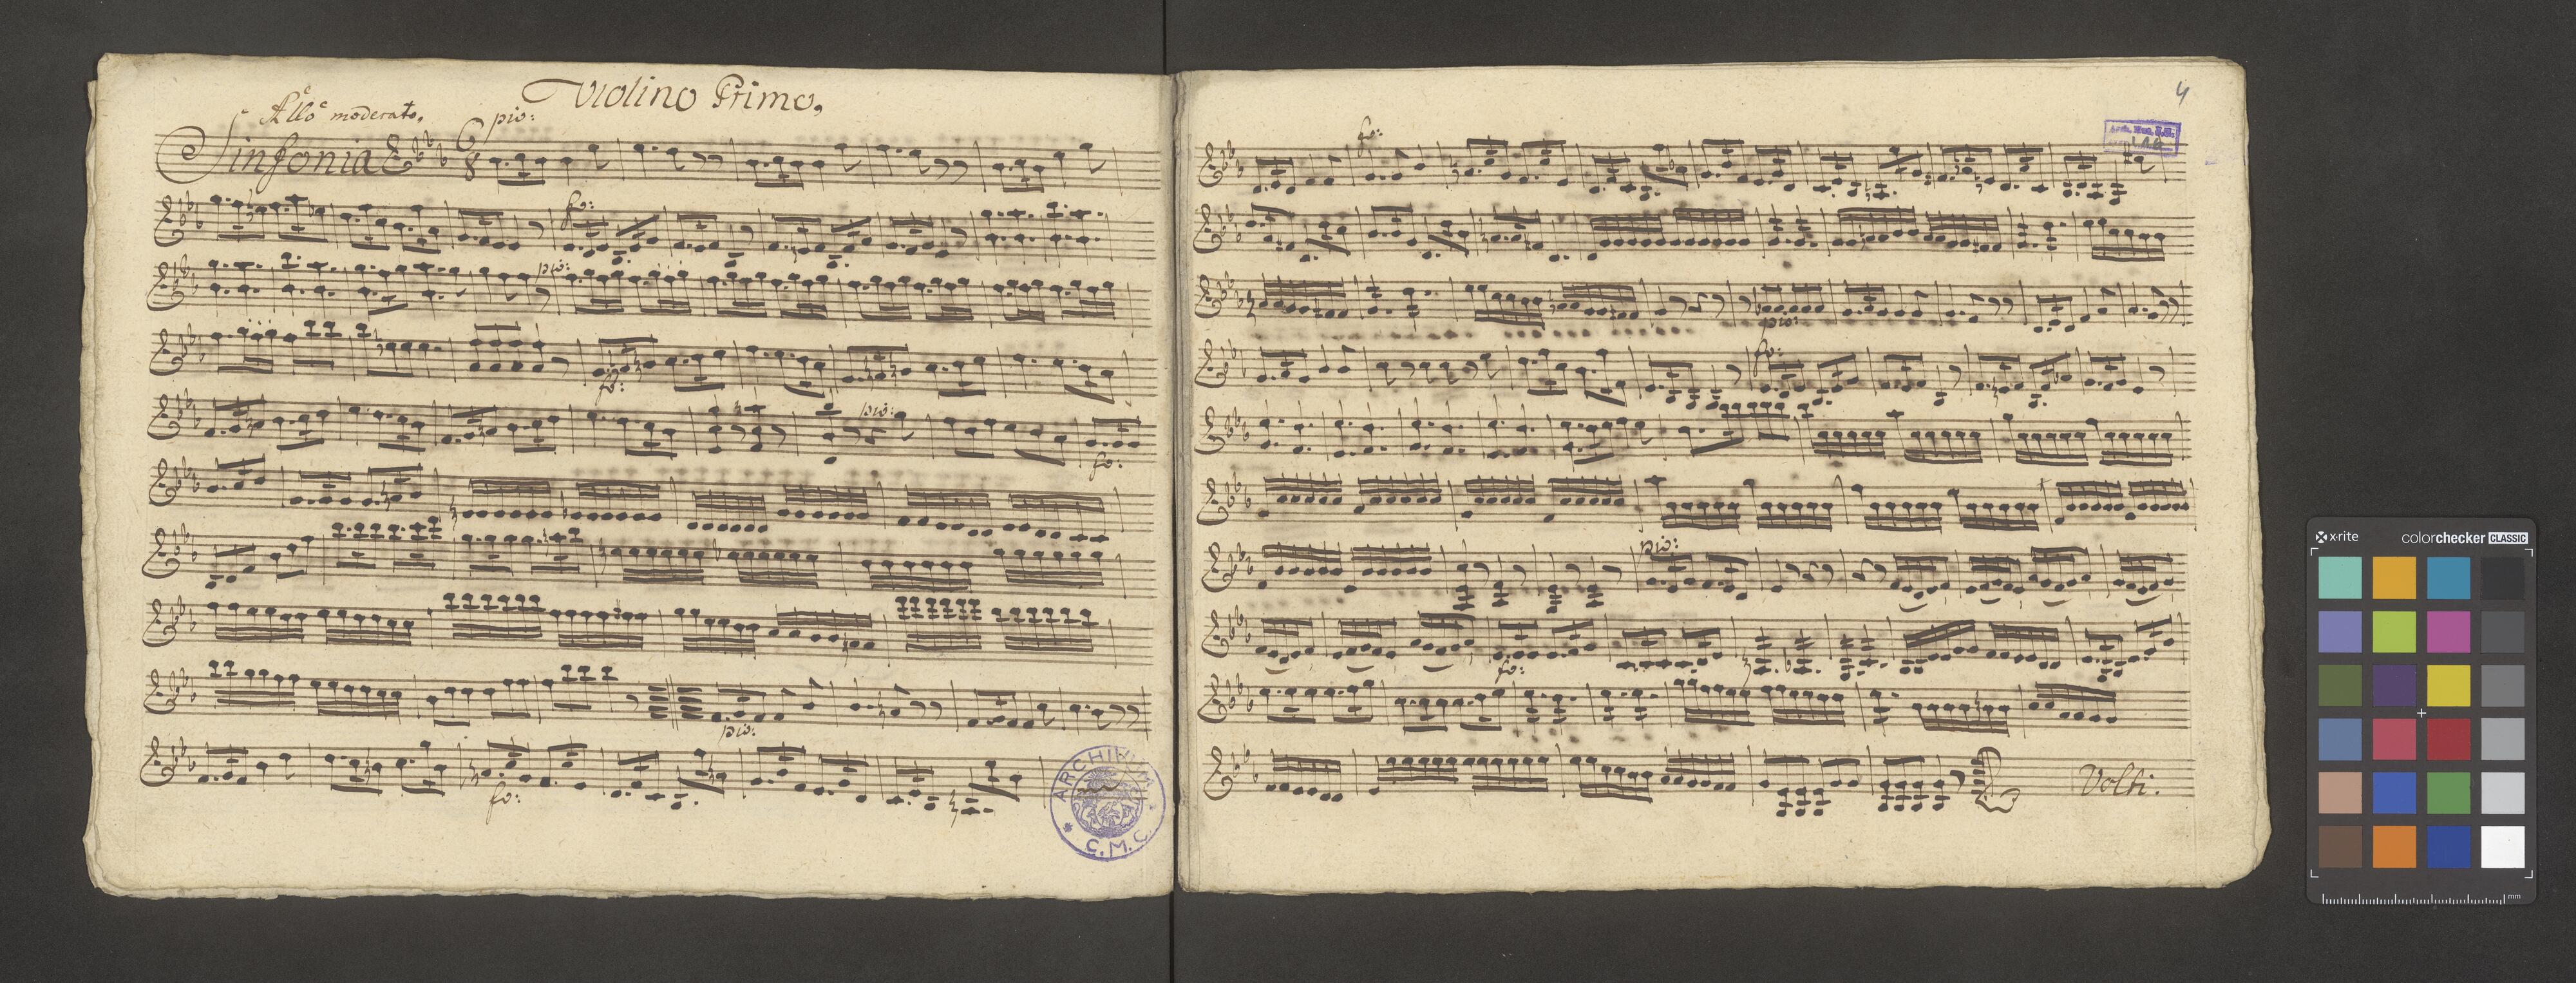 Violino Primo.
All.o moderato.
pio:
Sinfonia
6
8
fo:
pio:
fo:
pio:
fo:
pio:
fo:
ARCHIVUM
C.M.C.
4
fo:
pio:
fo:
pio:
fo:
Volti.
x-rite
colorchecker CLASSIC
mm